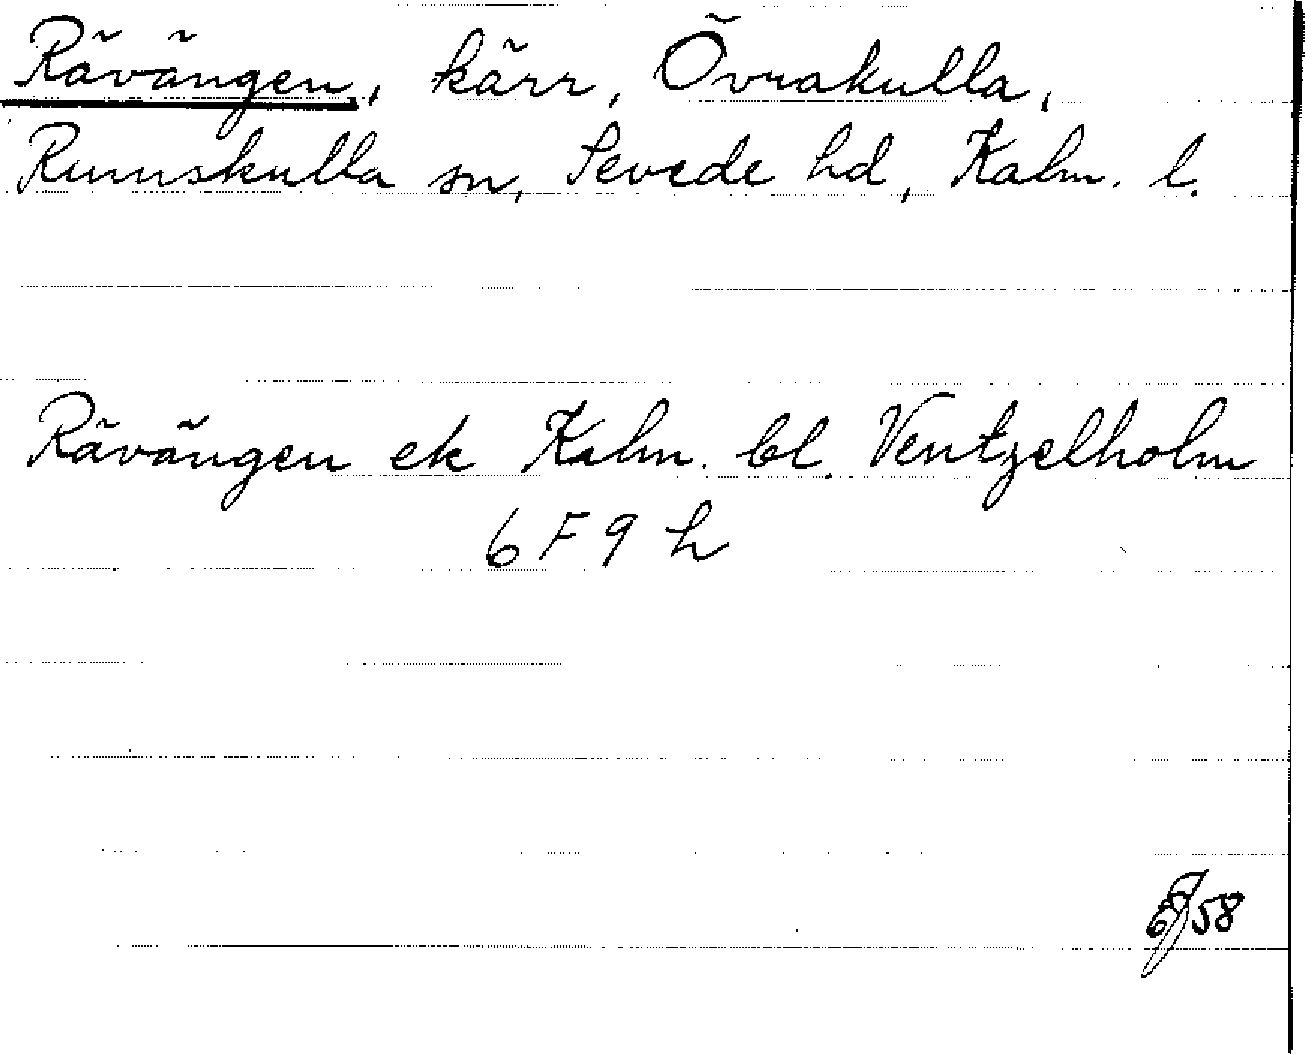 Rävängen, kärr, Övrakulla,
Rumskulla sn, Sevede hd, Kalm. l.
Rävängen ek Kalm. bl. Ventzelholm
6 F 9 h
58